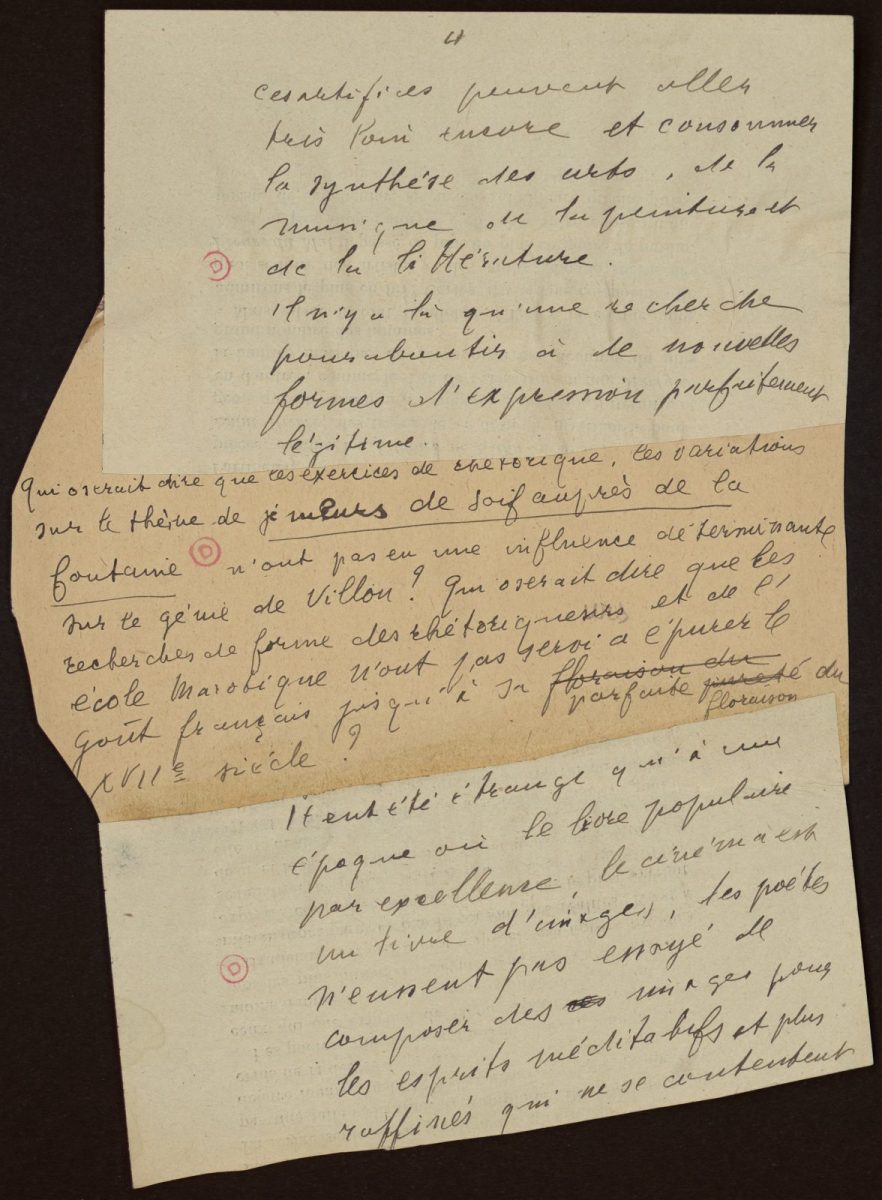 4
ces artifices peuvent aller
très loin encore et consommer
la synthèse des arts, de la
musique de la peinture et
de la littérature.
Il n'y a là qu'une recherche
pour aboutir à de nouvelles
formes d'expression parfaitement
légitime.
Qui oserait dire que les exercices de rhétorique, les variations
sur le thème de je meurs de soif auprès de la
fontaine n'ont pas eu une influence déterminante
sur le génie de Villon? Qui oserait dire que les
recherches de forme des rhétoriqueurs et de l'
école Marotique n'ont pas servi à épurer le
goût français jusqu'à sa floraison du
parfaite pureté du
floraison
XVIIe siècle?
Il eut été étrange qu'à une
époque où le livre populaire
par excellence, le cinéma est
un livre d'images, les poètes
n'eussent pas essayé de
composer des images pour
les esprits méditatifs et plus
raffinés qui ne se contentent
D
D
D